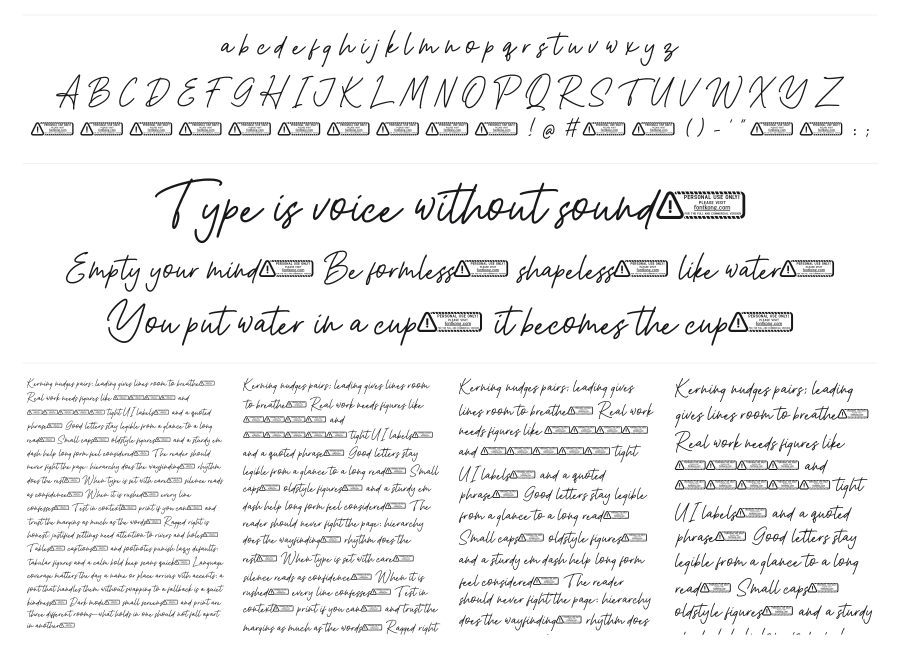 a b c d e f g h i j k l m n o p q r s t u v w x y z
A B C D E F G H I J K L M N O P Q R S T U V W X Y Z
! @ # ( ) - ' " : ;
Type is voice without sound
PERSONAL USE ONLY!
PLEASE VISIT
fontkong.com
FOR THE FULL AND COMMERCIAL VERSION
Empty your mind Be formless shapeless like water
You put water in a cup it becomes the cup
Kerning nudges pairs; leading gives lines room to breathe
Real work needs figures like and
tight UI labels and a quoted
phrase Good letters stay legible from a glance to a long
read Small caps oldstyle figures and a sturdy em
dash help long form feel considered The reader should
never fight the page: hierarchy does the wayfinding rhythm
does the rest When type is set with care silence reads
as confidence When it is rushed every line
confesses Test in context print if you can and
trust the margins as much as the words Ragged right is
honest; justified setting need attention to rivers and holes
Tables captions and footnotes punish lazy defaults:
tabular figures and a calm bold keep scans quick Language
coverage matters the day a name or place arrives with accents; a
font that handles them without swapping to a fallback is a quiet
kindness Dark mode small screens and print are
three different rooms—what holds in one should not fall apart
in another
Kerning nudges pairs; leading gives lines room
to breathe Real work needs figures like
and
tight UI labels
and a quoted phrase Good letters stay
legible from a glance to a long read Small
caps oldstyle figures and a sturdy em
dash help long form feel considered The
reader should never fight the page: hierarchy
does the wayfinding rhythm does the
rest When type is set with care
silence reads as confidence When it is
rushed every line confesses Test in
context print if you can and trust the
margins as much as the words Ragged right
Kerning nudges pairs; leading gives
lines room to breathe Real work
needs figures like
and tight
UI labels and a quoted
phrase Good letters stay legible
from a glance to a long read
Small caps oldstyle figures
and a sturdy em dash help long form
feel considered The reader
should never fight the page: hierarchy
does the wayfinding rhythm does
Kerning nudges pairs; leading
gives lines room to breathe
Real work needs figures like
and
tight
UI labels and a quoted
phrase Good letters stay
legible from a glance to a long
read Small caps
oldstyle figures and a sturdy